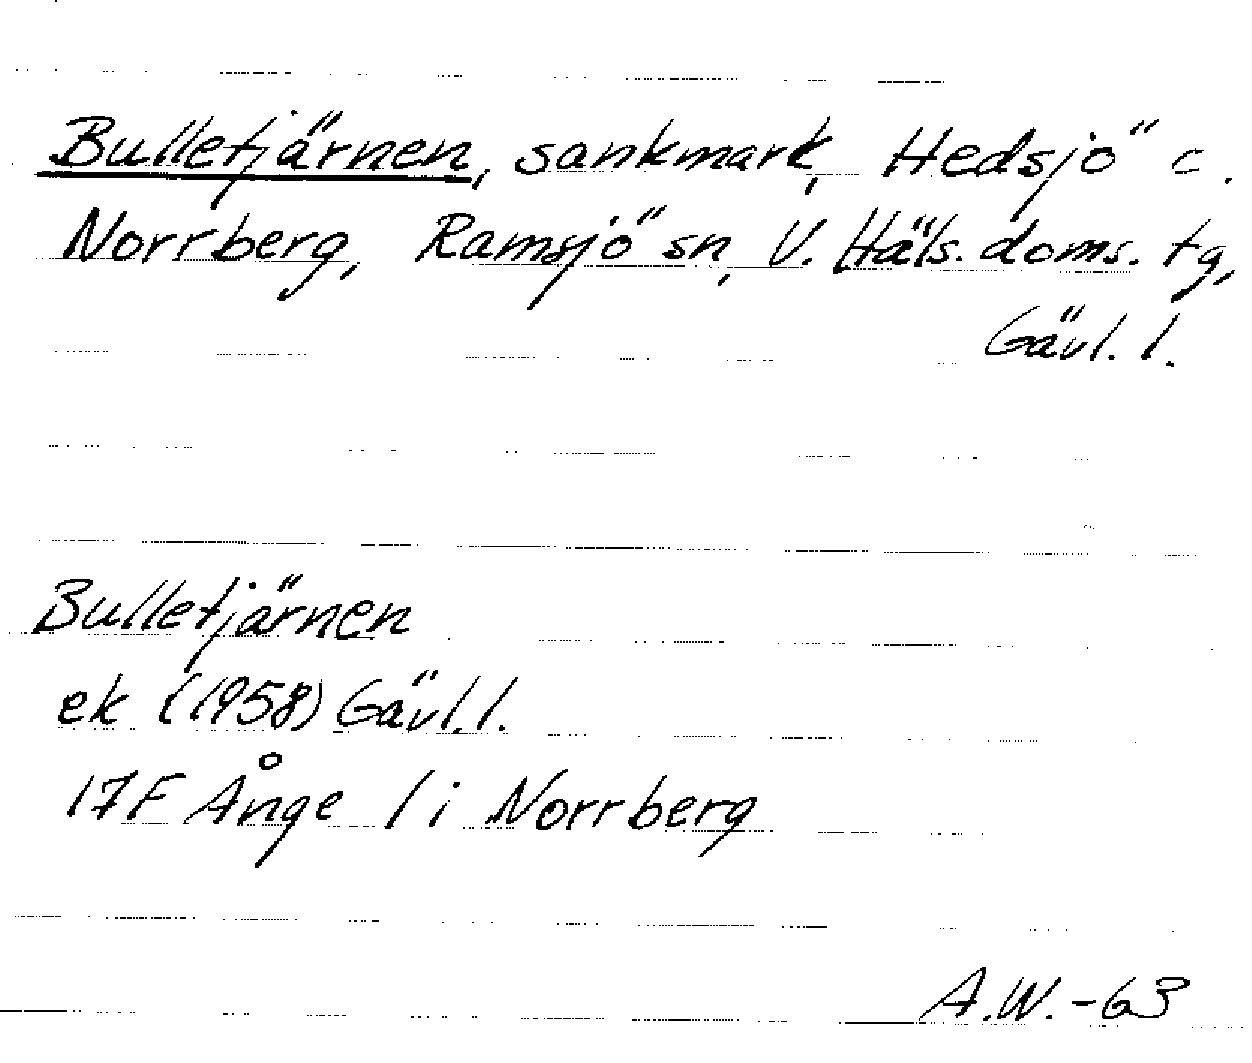 Bulletjärnen, sankmark, Hedsjö c.
Norrberg, Ramsjö sn, V. Häls. doms. tg,
Gävl. l.
Bulletjärnen
ek (1958) Gävl. l.
17F Ånge 1 i Norrberg
A.W. -63